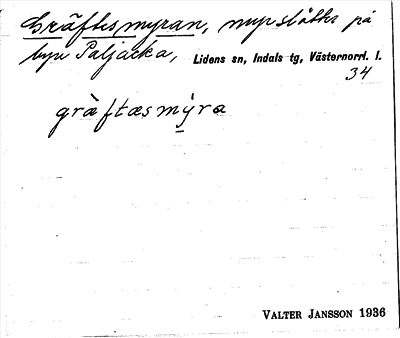 Gräftesmyran, myrslåtte på
byn Paljacka, Lidens sn, Indals tg, Västernorrl. l.
34
grä̀ftæsmýra
VALTER JANSSON 1936